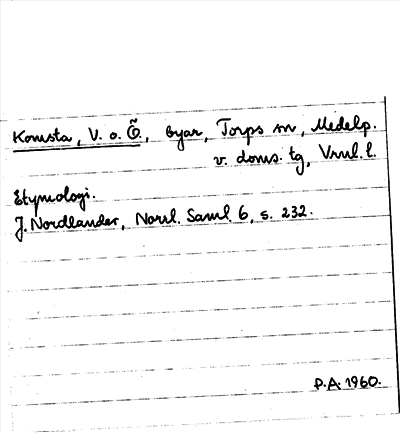 Komsta, V. o. Ö., byar, Torps sn, Medelp.
v. doms. tg, Vrnl. l.
Etymologi.
J. Nordlander, Norrl. Saml. 6, s. 232.
P.A. 1960.